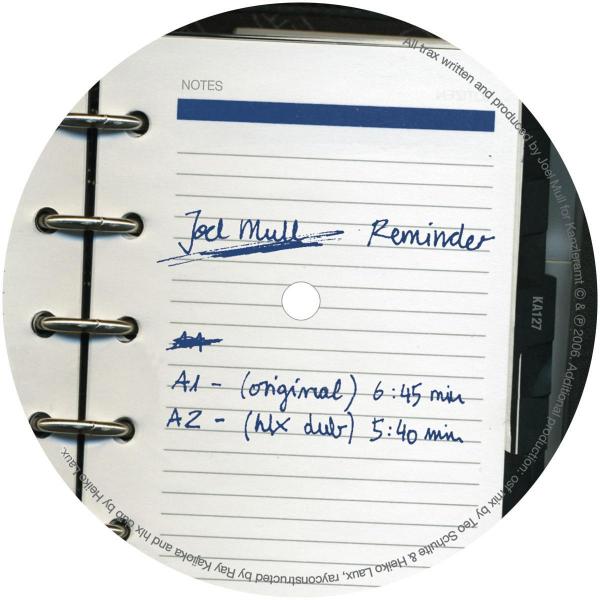 NOTES
Joel Mull Reminder
A1
A1 - (original) 6:45 min
A2 - (hlx dub) 5:40 min
KA127
All trax written and produced by Joel Mull for Kanzleramt © & ℗ 2006. Additional production: ost mix by Teo Schulte & Heiko Laux, rayconstructed by Ray Kajioka and hlx dub by Heiko Laux.